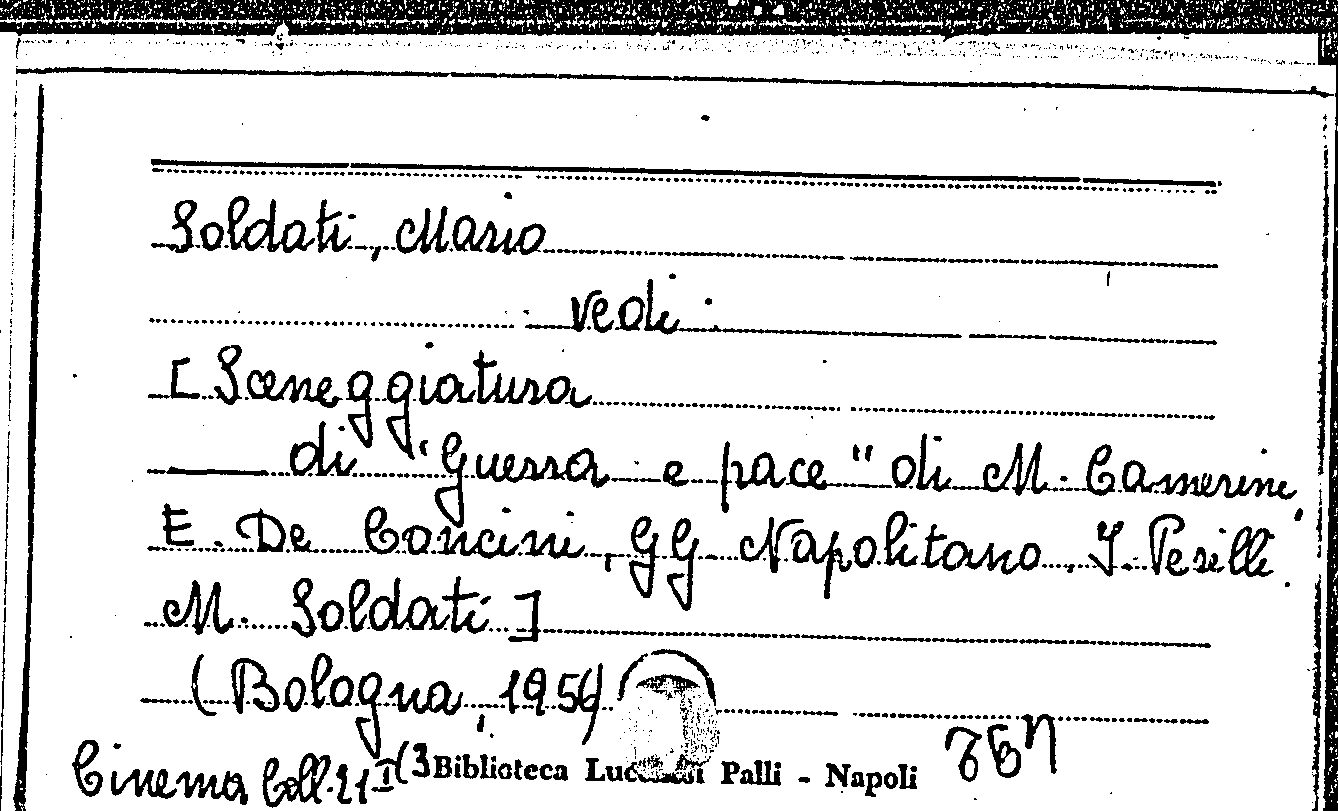 Soldati, Mario
vedi:
[Sceneggiatura
di "Guerra e pace" di M. Camerini,
E. De Concini, G G. Napolitano. I. Perilli.
M. Soldati]
(Bologna, 1956)
Cinema Coll. 21 I (3 Biblioteca Lucchesi Palli - Napoli